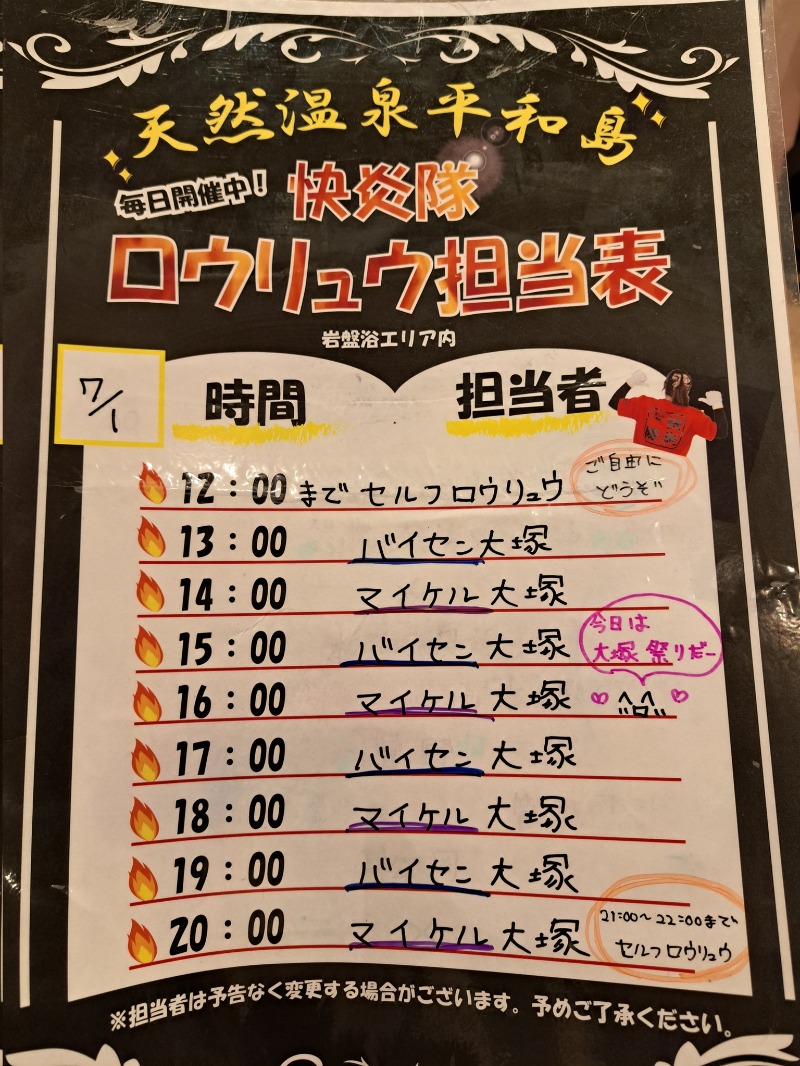 天然温泉平和島
毎日開催中！
快炎隊
ロウリュウ担当表
岩盤浴エリア内
7/1
時間
担当者
12：00 まで セルフロウリュウ
ご自由に
どうぞ
13：00 バイセン大塚
14：00 マイケル大塚
15：00 バイセン大塚
今日は
大塚祭りだー
16：00 マイケル大塚
17：00 バイセン大塚
18：00 マイケル大塚
19：00 バイセン大塚
20：00 マイケル大塚
21:00～22:00まで
セルフロウリュウ
※担当者は予告なく変更する場合がございます。予めご了承ください。